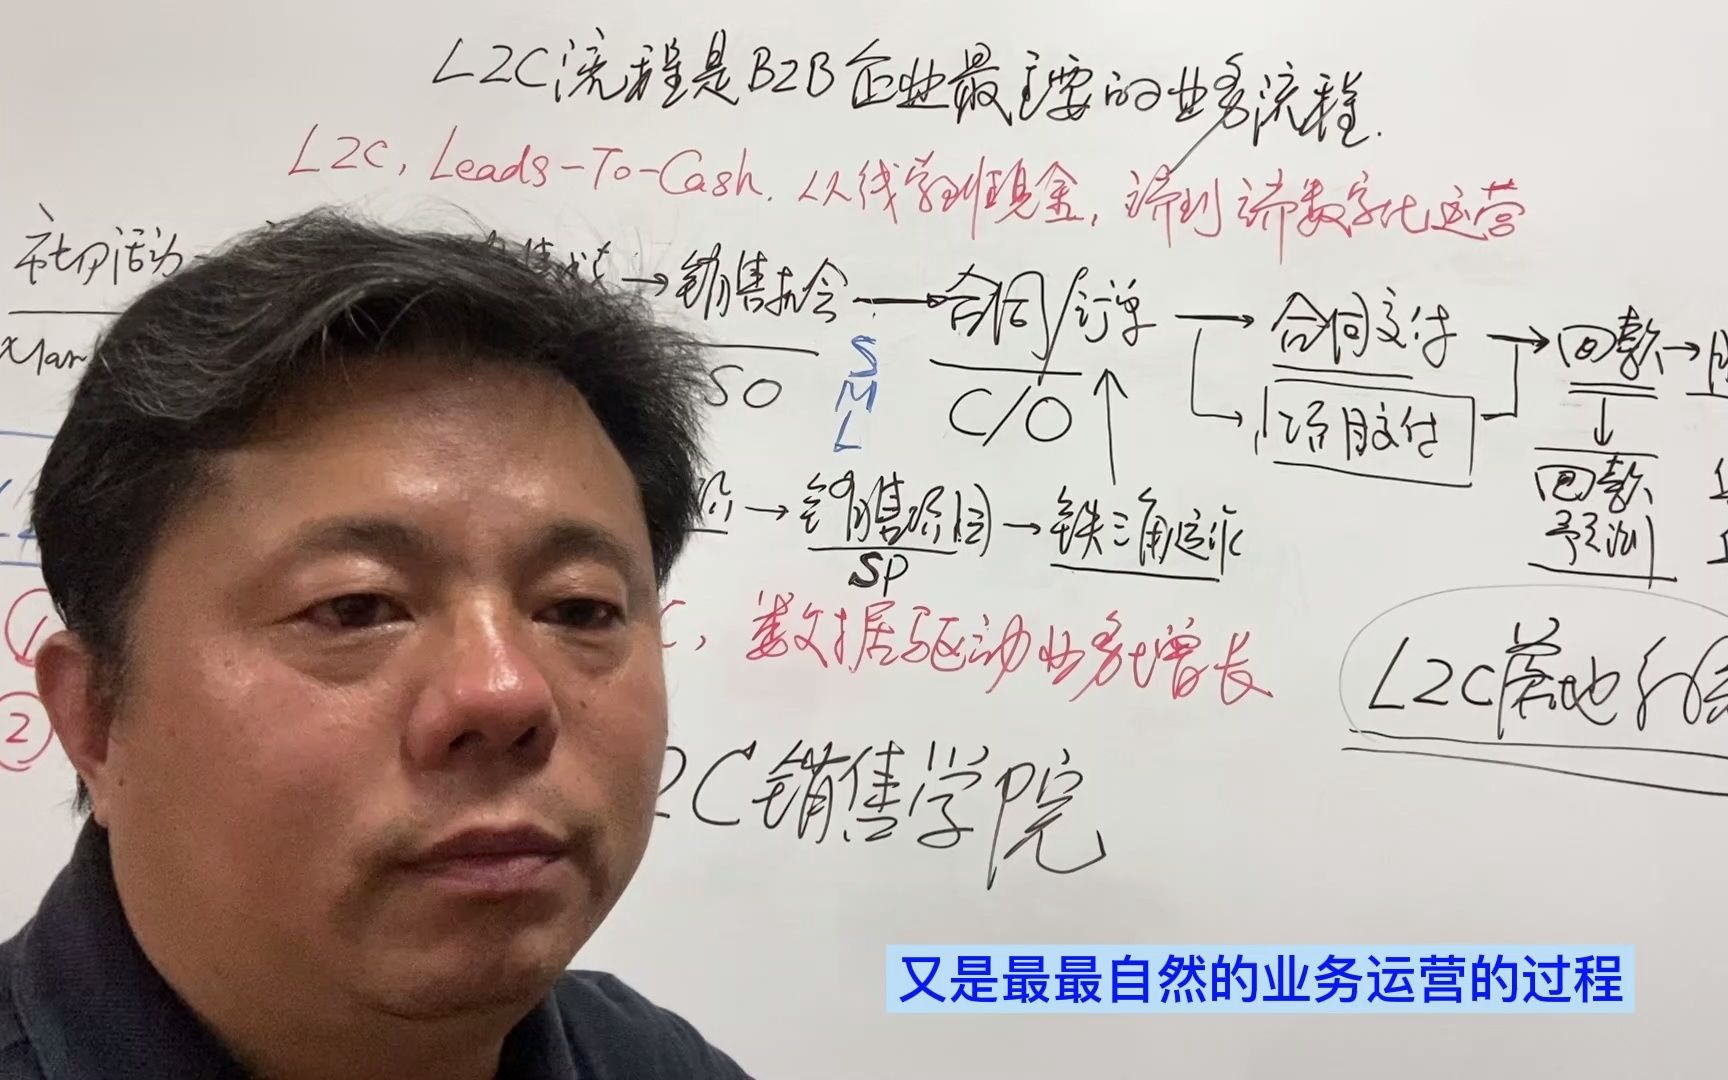 L2C流程是B2B企业最主要的业务流程.
L2C, Leads-To-Cash. 从线索到现金, 端到端数字化运营
市场活动 → 销售机会 → 合同/订单 → 合同交付 → 回款 →
SO
S
M
L
C/O
项目交付
回款
预测
→ 销售阶段 → 铁三角运作
SP
①
C, 数据驱动业务增长
②
L2C落地
2C销售学院
又是最最自然的业务运营的过程